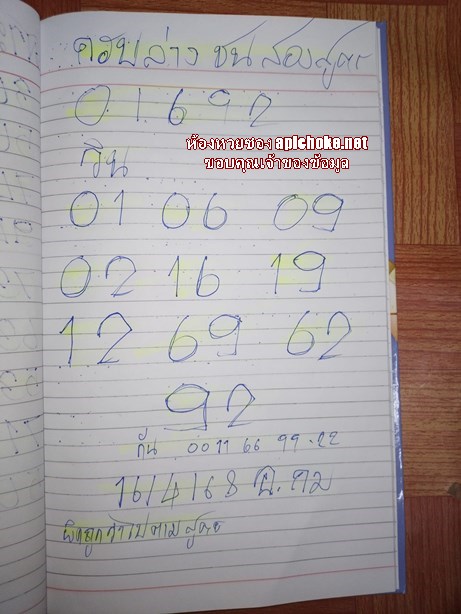 ครบ ล่าง ชน สองสูตร
0 1 6 9 2
ห้องหวยซอง apichoke.net
ขอบคุณเจ้าของข้อมูล
วิน
01 06 09
02 16 19
12 69 62
92
กัน 00 11 66 99-22
16/4/68
ผิดถูกว่าไปตามสูตร